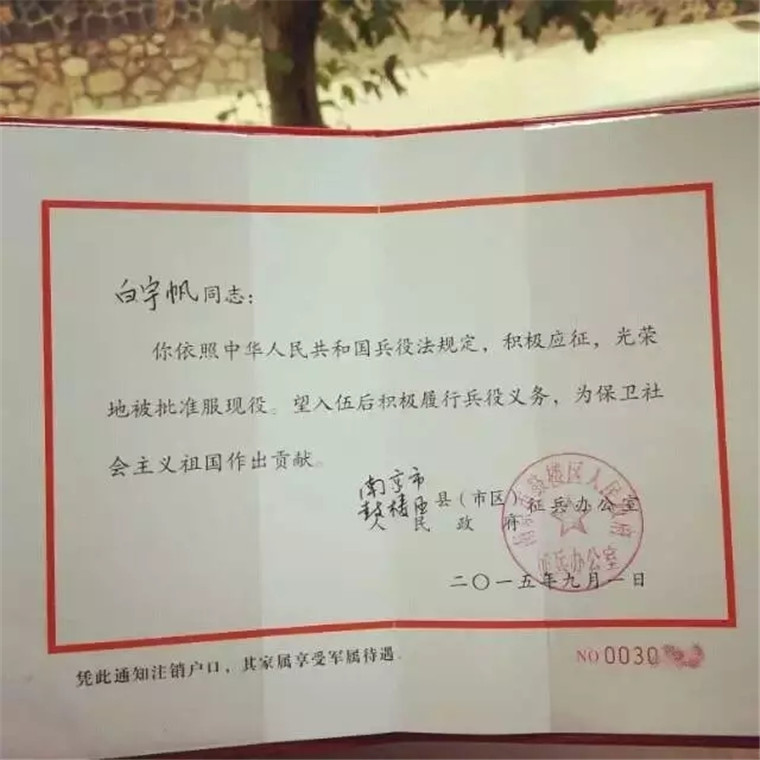 白宇帆同志：
你依照中华人民共和国兵役法规定，积极应征，光荣
地被批准服现役。望入伍后积极履行兵役义务，为保卫社
会主义祖国作出贡献。
南京市
鼓楼区 县（市区）征兵办公室
人民政府
鼓楼区人民政府
征兵办公室
二〇一五年九月一日
凭此通知注销户口，其家属享受军属待遇
NO 0030